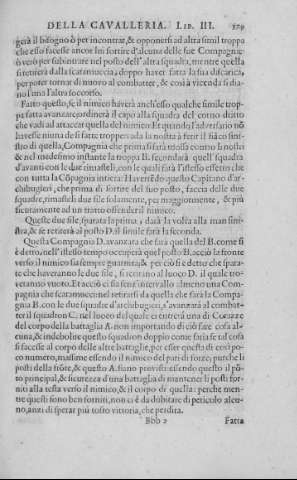 DELLA CAVALLERIA. LIB. III.
gerà il bisogno ò per incontrar, & opponersi ad altra simil troppa
che esso facesse ancor lui sortire d'alcuna delle sue Compagnie
ò vero per subintrare nel posto dell'altra squadra, mentre quella
si ritirerà dalla scaramuccia, doppo haver fatta la sua discarica,
per poter tornar di nuovo al combatter, & così à vicenda si diano
l'una l'altra soccorso.
Fatto questo, se il nimico haverà anch'esso qualche simile troppa
fatta avanzare, ordinerà il capo alla squadra del corno dritto
che vadi ad attaccar quella del nimico: Et quando l'adversario nõ
havesse niuna de si fatte troppe, ordinerà la nostra à ferir il fiãco sinistro
di quella, Compagnia che prima si farà mossa contro la nostra
& nel medesimo instante la troppa B. seconderà quell'squadra
d'avanti con le due rimasteli, con le quali farà l'istesso effetto che
con tutta la Cõpagnia intiera: Haverebbe questo Capitano d'archibugieri,
che prima di sortire del suo posto, faccia delle due
squadre, rimasteli due file solamente, per maggiormente, & più
sicuramente ad un tratto offenderà il nimico.
Queste due file, sparata la prima, darà la volta alla man sinistra,
& se ritirerà al posto D. il simile farà la seconda.
Quella Compagnia D. avanzata che sarà quella del B. come si
è detto, nell'istesso tempo occuperà quel posto B. acciò la fronte
verso il nimico sia sempre guarnita, & per ciò si è detto che sparate
che haveranno le due file, si ritirano al luogo D. il quale troveranno
vuoto. Et acciò ci sia senz'intervallo almeno una Compagnia
che scaramucci nel ritirarsi da quella che farà la Compagnia
B. con le due squadre d'archibugieri, s'avanzarà al combatter
il squadron C. nel luoco del quale entrerà una di Corazze
del corpo della battaglia A. non importando di ciò fare cosa alcuna,
& indebolire questo squadron doppio come faria se tal cosa
si facesse al corpo delle altre battaglie, per esser questo di così poco
numero, massime essendo il nimico del pari di forze; purche li
posti della frõte, & questo A. siano provisti essendo questo il põto
principal, & sicurezza d'una battaglia di mantener li posti forniti
alla testa verso il nimico, & il corpo di quella: perche mentre
questi sono ben forniti, non ci è da dubitare di pericolo alcuno,
anzi di sperar più tosto vittoria, che perdita.
Bbb 2 Fatta